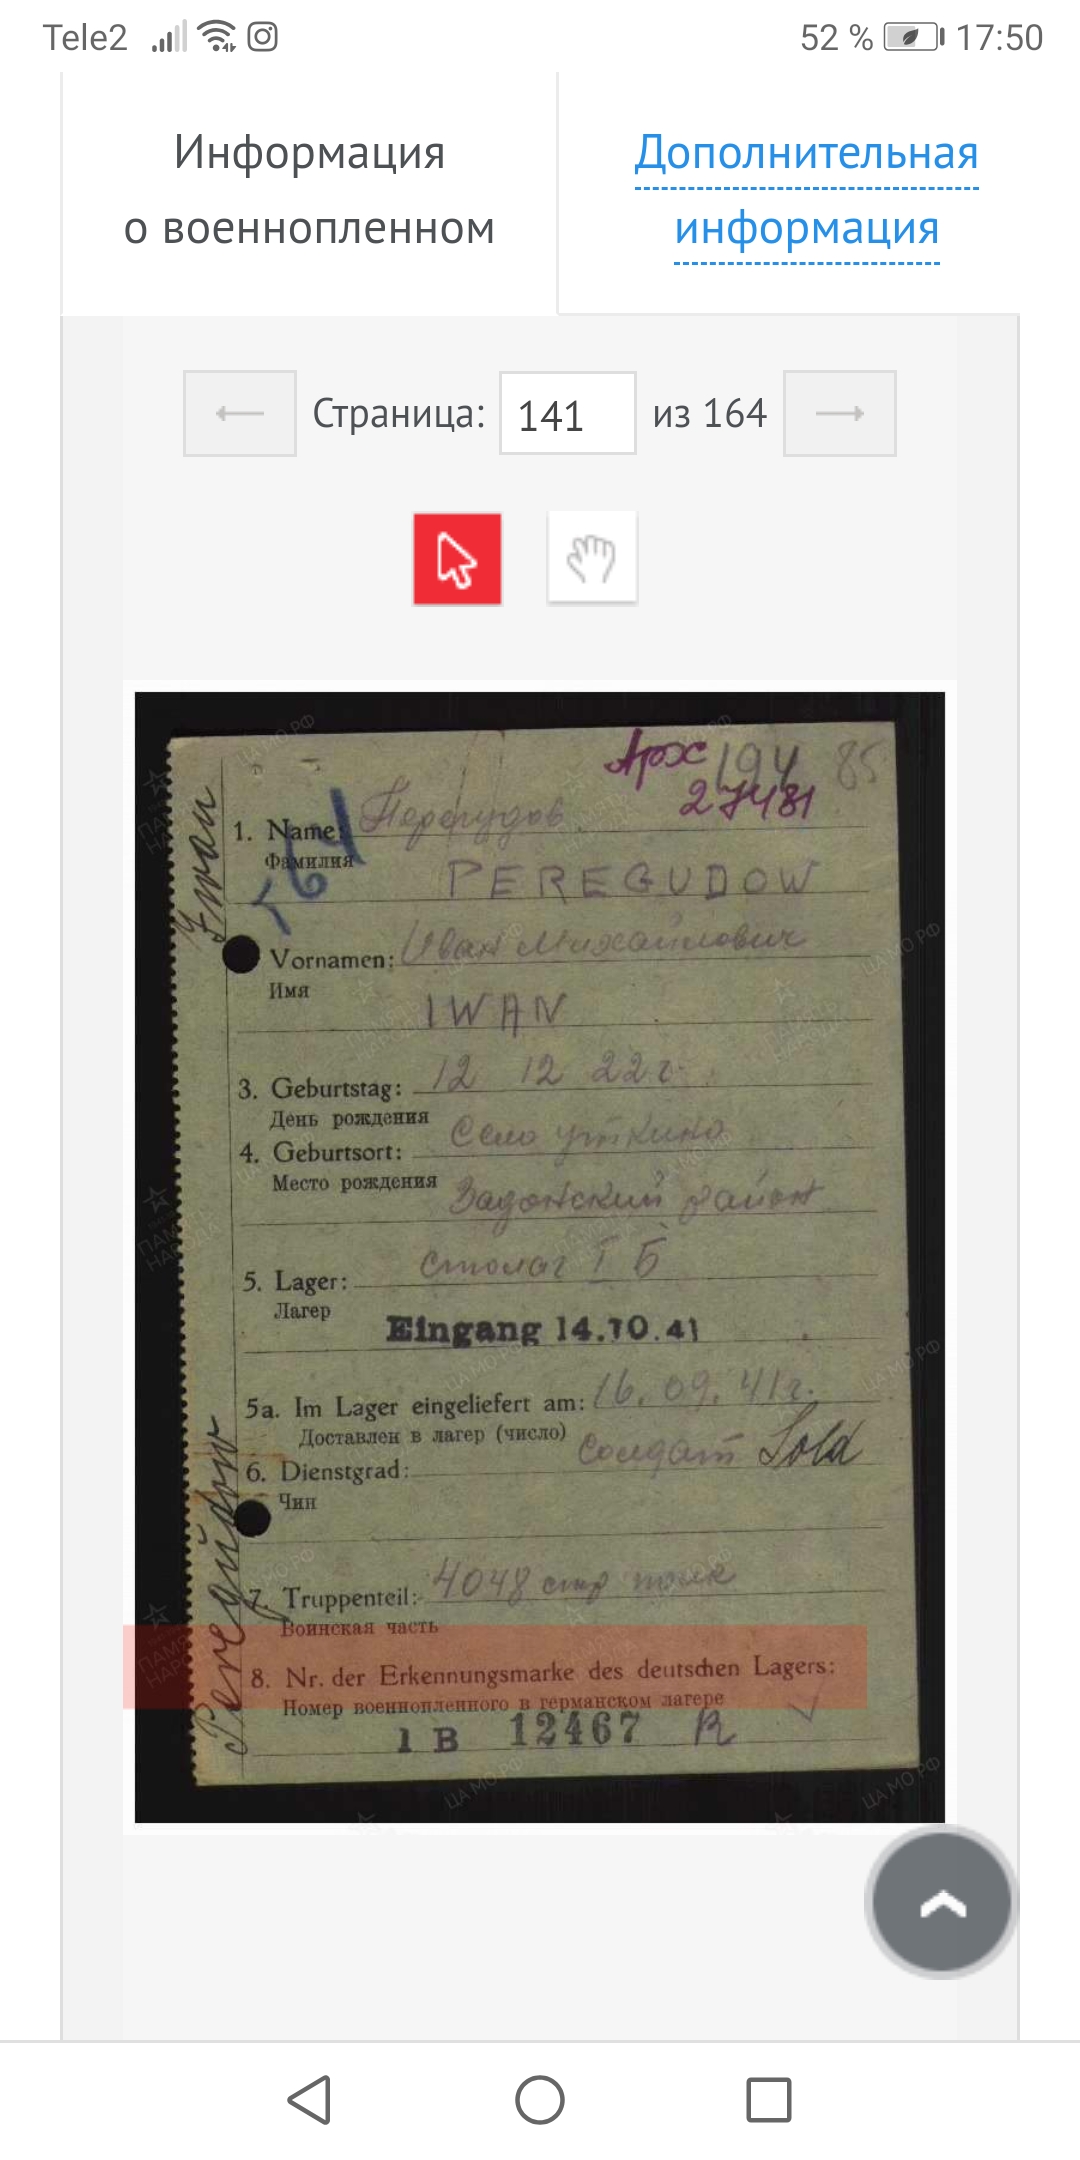 Tele2 52 % 17:50
Информация
о военнопленном
Дополнительная
информация
Страница: 141 из 164
Арх 194 85
27481
1. Name: Перегудов
Фамилия
64
PEREGUDOW
Iwan
Vornamen: Иван Михайлович
Имя
IWAN
3. Geburtstag: 12 12 22 г.
День рождения
4. Geburtsort: Село Уткино
Место рождения
Задонский район
5. Lager: сталаг I Б
Лагер
Eingang 14.10.41
5a. Im Lager eingeliefert am: 16.09.41г.
Доставлен в лагер (число)
6. Dienstgrad: солдат Sold
Чин
Peregudow
7. Truppenteil: 4048 стр полк
Воинская часть
8. Nr. der Erkennungsmarke des deutschen Lagers:
Номер военнопленного в германском лагере
1 B 12467 R
ПАМЯТЬ
НАРОДА
ЦАМО РФ